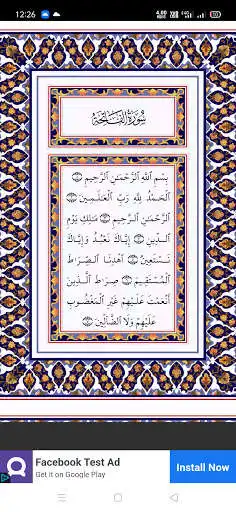 12:26
سُورَةُ الْفَاتِحَةِ
بِسْمِ اللَّهِ الرَّحْمَٰنِ الرَّحِيمِ ۝
الْحَمْدُ لِلَّهِ رَبِّ الْعَالَمِينَ ۝
الرَّحْمَٰنِ الرَّحِيمِ ۝ مَالِكِ يَوْمِ
الدِّينِ ۝ إِيَّاكَ نَعْبُدُ وَإِيَّاكَ
نَسْتَعِينُ ۝ اهْدِنَا الصِّرَاطَ
الْمُسْتَقِيمَ ۝ صِرَاطَ الَّذِينَ
أَنْعَمْتَ عَلَيْهِمْ غَيْرِ الْمَغْضُوبِ
عَلَيْهِمْ وَلَا الضَّالِّينَ ۝
Facebook Test Ad
Get it on Google Play
Install Now